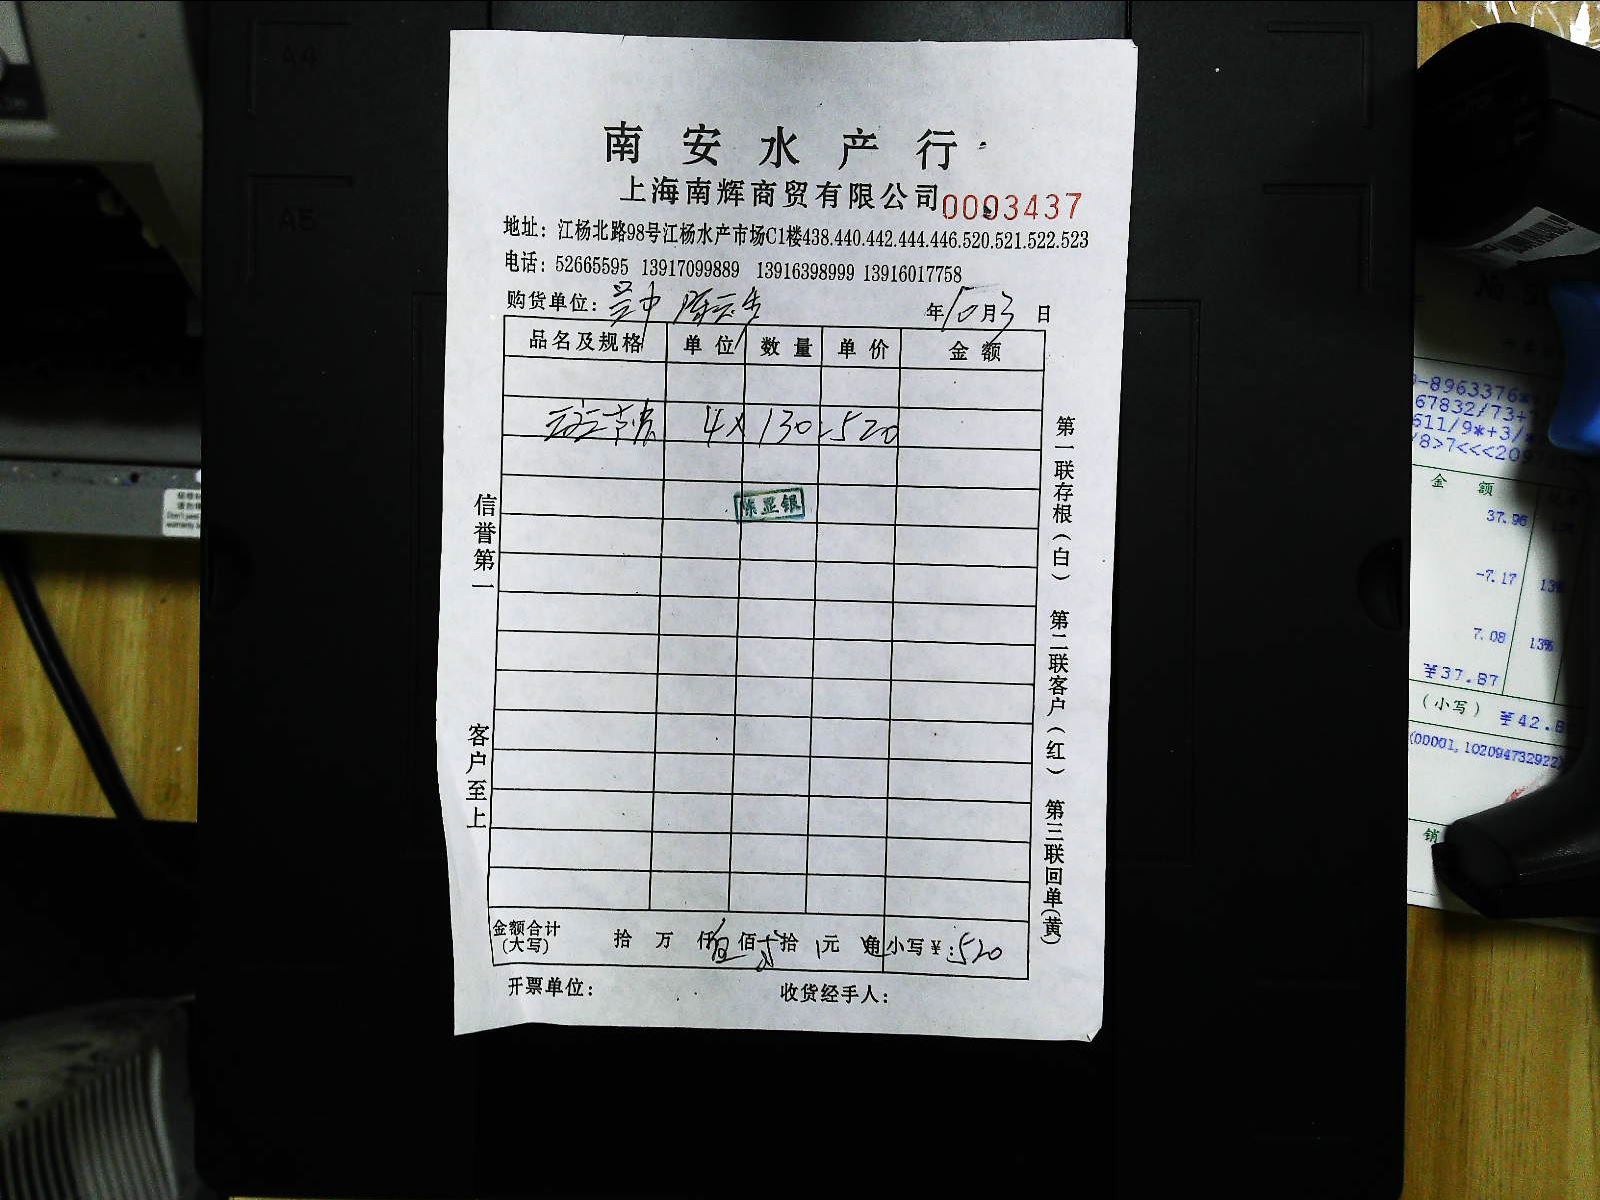 南安水产行
上海南辉商贸有限公司 0003437
地址：江杨北路98号江杨水产市场C1楼438.440.442.444.446.520.521.522.523
电话：52665595 13917099889 13916398999 13916017758
购货单位：吴中 年10月3日
品名及规格 单位 数量 单价 金额
4 X 130 = 520
张显银
信誉第一
客户至上
第一联存根（白） 第二联客户（红） 第三联回单（黄）
金额合计（大写） 拾 万 仟 伍佰 贰拾 元 小写￥：520
开票单位： 收货经手人：
A4
A5
67832/73+
611/9*+3/
/8>7<<<209
金 额
37.96
-7.17 13%
7.08 13%
￥37.87
（小写） ￥42.8
销